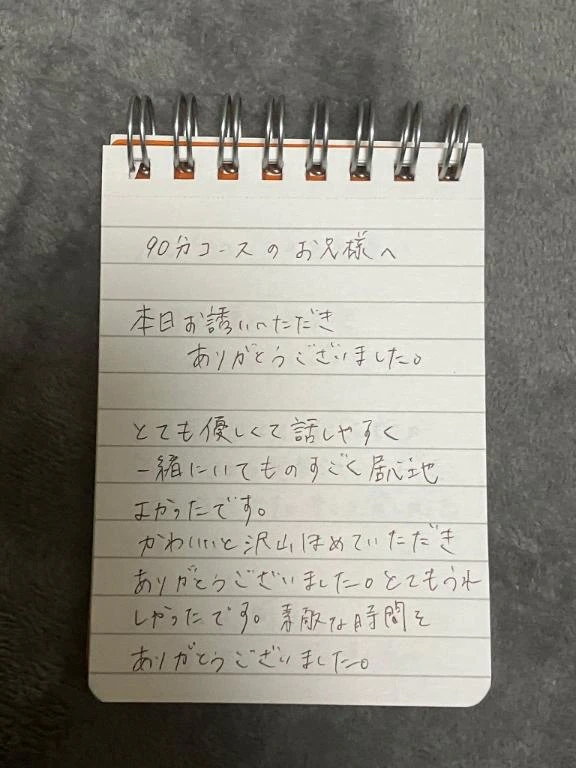 90分コースのお兄様へ
本日お誘いいただき
ありがとうございました。
とても優しくて話しやすく
一緒にいてものすごく居心地
よかったです。
かわいいと沢山ほめていただき
ありがとうございました。とてもうれ
しかったです。素敵な時間を
ありがとうございました。